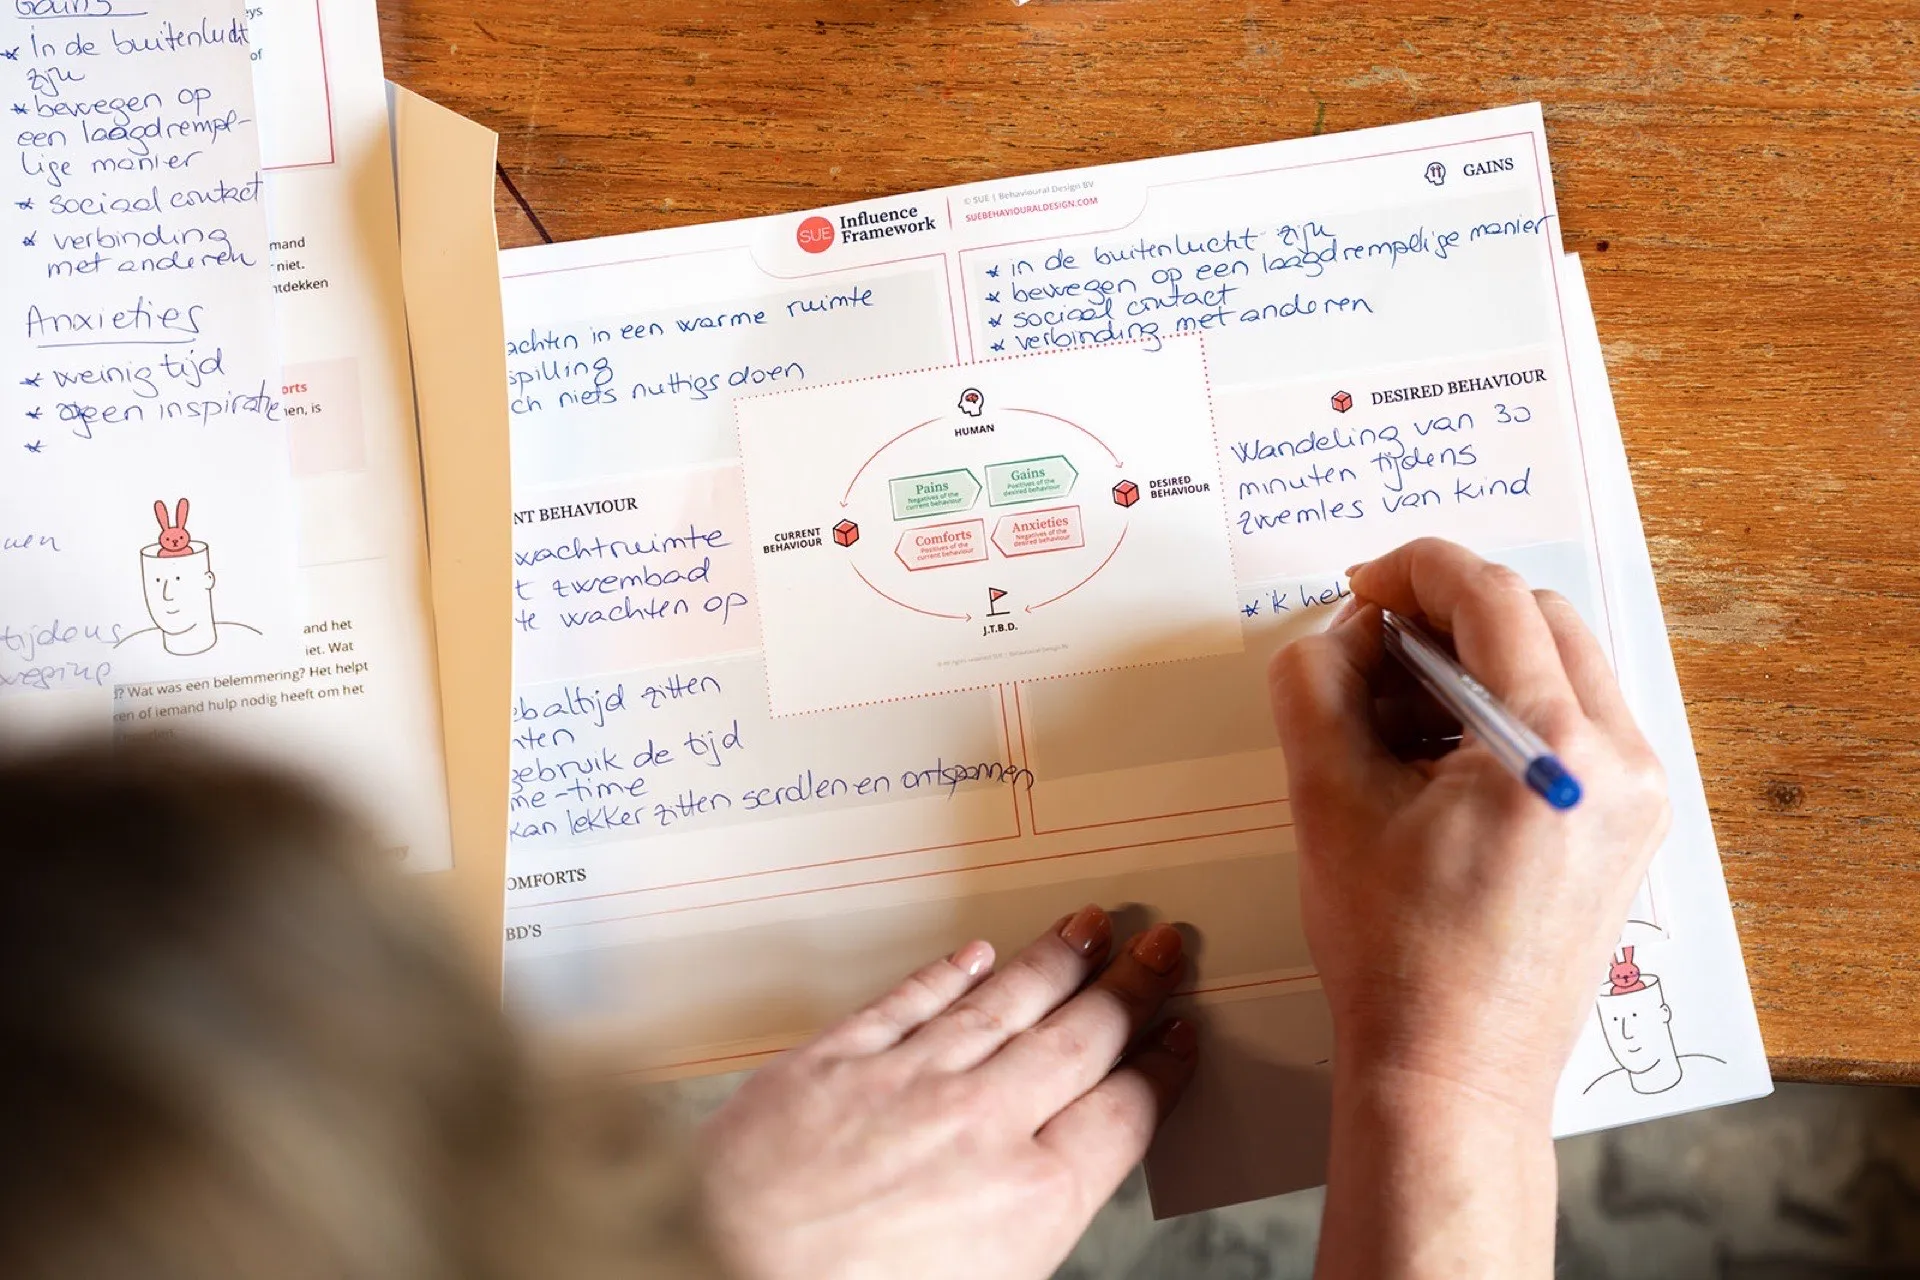 Gains
* in de buitenlucht
zijn
* bewegen op
een laagdrempe-
lige manier
* sociaal contact
* verbinding
met anderen
Anxieties
* weinig tijd
* geen inspiratie
*
tijdens
eys
of
mand
niet.
ntdekken
orts
nen, is
and het
iet. Wat
? Wat was een belemmering? Het helpt
ren of iemand hulp nodig heeft om het
SUE
Influence
Framework
© SUE | Behavioural Design BV
SUEBEHAVIOURALDESIGN.COM
GAINS
* in de buitenlucht zijn
* bewegen op een laagdrempelige manier
* sociaal contact
* verbinding met anderen
achten in een warme ruimte
spilling
ch niets nuttigs doen
NT BEHAVIOUR
wachtruimte
t zwembad
te wachten op
DESIRED BEHAVIOUR
Wandeling van 30
minuten tijdens
zwemles van kind
* ik heb
HUMAN
Pains
Negatives of the
current behaviour
Gains
Positives of the
desired behaviour
Comforts
Positives of the
current behaviour
Anxieties
Negatives of the
desired behaviour
CURRENT
BEHAVIOUR
DESIRED
BEHAVIOUR
J.T.B.D.
altijd zitten
nten
gebruik de tijd
me-time
kan lekker zitten scrollen en ontspannen
OMFORTS
BD'S